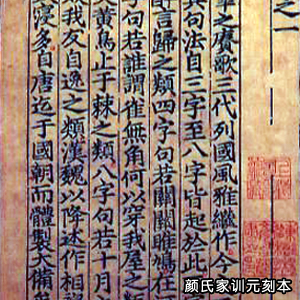 之一
之賡歌三代列國風雅繼作今
其句法自三字至八字皆起於此
言歸之類四字句若關關雎鳩在
句若誰謂雀無角何以穿我屋之
黃鳥止于棘之類八字句若十月
我友自逸之類漢魏以降述作相
寖多自唐迄于國朝而體製大備
颜氏家训元刻本